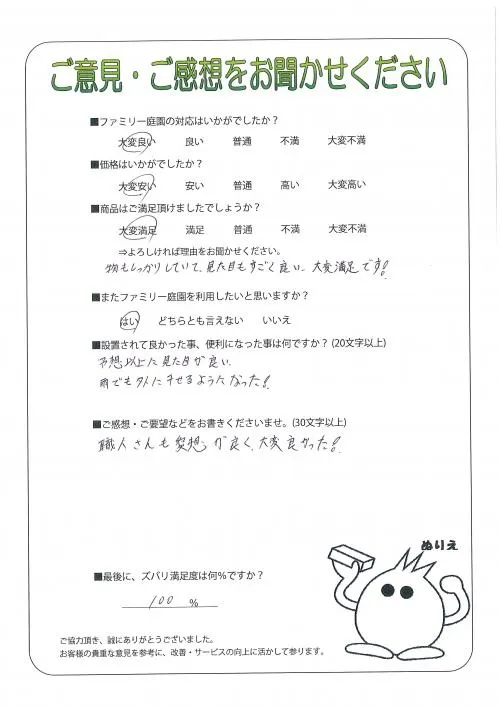 ご意見・ご感想をお聞かせください
■ファミリー庭園の対応はいかがでしたか？
大変良い 良い 普通 不満 大変不満
■価格はいかがでしたか？
大変安い 安い 普通 高い 大変高い
■商品はご満足頂けましたでしょうか？
大変満足 満足 普通 不満 大変不満
⇒よろしければ理由をお聞かせください。
物もしっかりしていて、見た目もすごく良い、大変満足です!
■またファミリー庭園を利用したいと思いますか？
はい どちらとも言えない いいえ
■設置されて良かった事、便利になった事は何ですか？(20文字以上)
予想以上に見た目が良い。
雨でも外に干せるようになった!
■ご感想・ご要望などをお書きくださいませ。(30文字以上)
職人さんも愛想が良く、大変良かった!
ぬりえ
■最後に、ズバリ満足度は何％ですか？
100 %
ご協力頂き、誠にありがとうございました。
お客様の貴重な意見を参考に、改善・サービスの向上に活かして参ります。